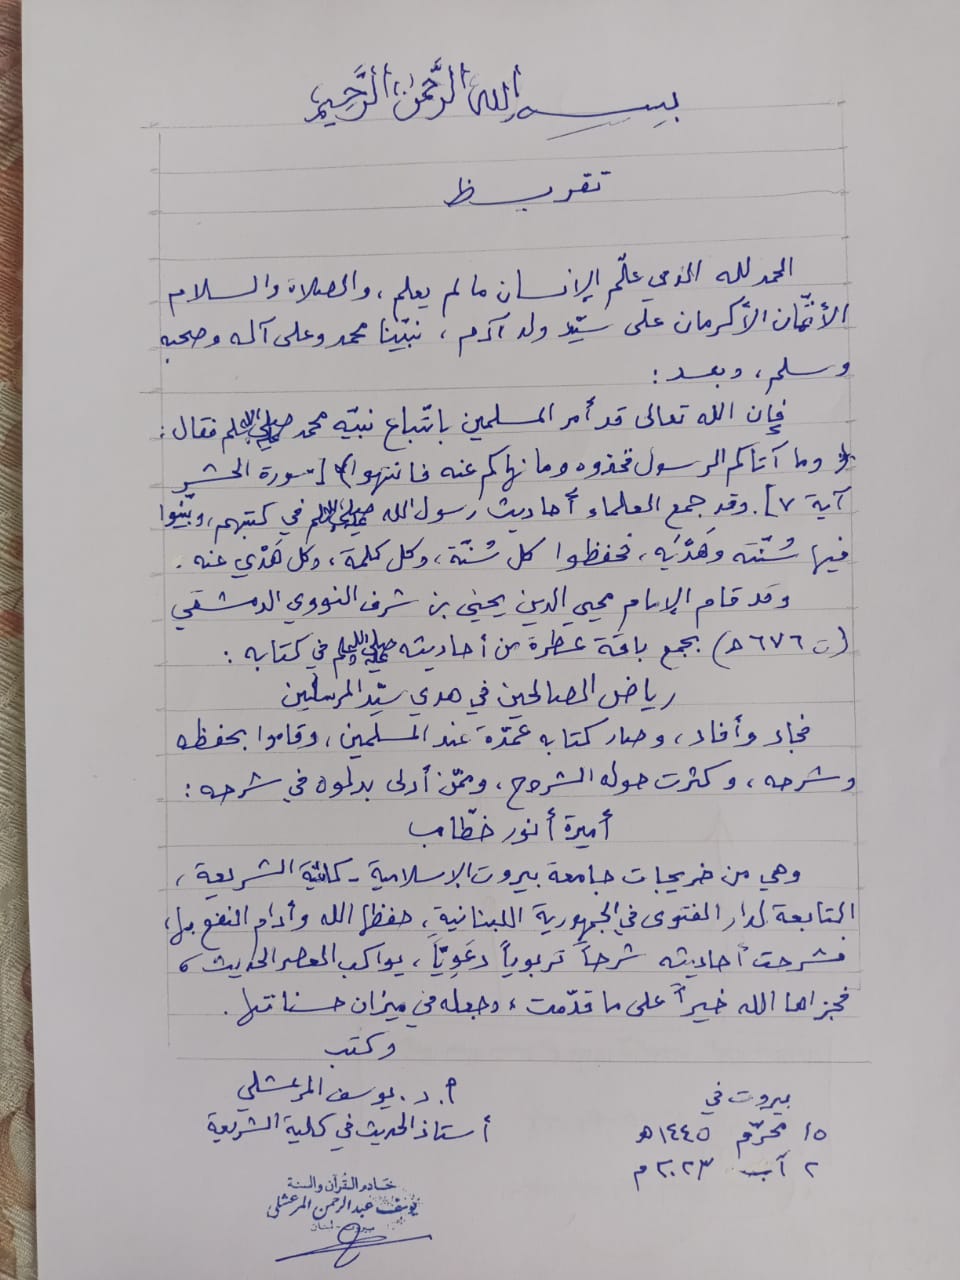 بسم الله الرَّحمن الرَّحيم
تقريظ
الحمد لله الذي علّم الإنسان ما لم يعلم، والصلاة والسلام
الأتمّان الأكرمان على سيّد ولد آدم، نبيّنا محمد وعلى آله وصحبه
وسلم، وبعد:
فإن الله تعالى قد أمر المسلمين باتّباع نبيّه محمد ﷺ فقال:
﴿وما آتاكم الرسول فخذوه وما نهاكم عنه فانتهوا﴾ [سورة الحشر
آية ٧]. وقد جمع العلماء أحاديث رسول الله ﷺ في كتبهم، وبيّنوا
فيها سُنّته وهَدْيَه، فحفظوا كل سُنّة، وكل كلمة، وكل هَدْي عنه.
وقد قام الإمام محيي الدين يحيى بن شرف النووي الدمشقي
(ت ٦٧٦ هـ) بجمع باقة عطرة من أحاديثه ﷺ في كتابه:
رياض الصالحين في هدي سيّد المرسلين
فجاد وأفاد، وصار كتابه عمدة عند المسلمين، وقاموا بحفظه
وشرحه، وكثرت حوله الشروح، وممّن أدلى بدلوه في شرحه:
أميرة أنور خطّاب
وهي من خريجات جامعة بيروت الإسلامية - كليّة الشريعة،
التابعة لدار الفتوى في الجمهورية اللبنانية، حفظها الله وأدام النفع بها،
فشرحت أحاديثه شرحاً تربوياً دعَويّاً، يواكب العصر الحديث،
فجزاها الله خيراً على ما قدّمت، وجعله في ميزان حسناتها.
وكتب
أ. د. يوسف المرعشلي
أستاذ الحديث في كلية الشريعة
بيروت في
١٥ محرّم ١٤٤٥ هـ
٢ آب ٢٠٢٣ م
خادم القرآن والسنة
يوسف عبد الرحمن المرعشلي
بيروت - لبنان